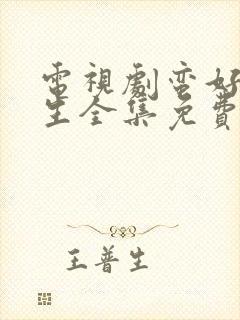 電視劇蛮好
生全集免費
王普生